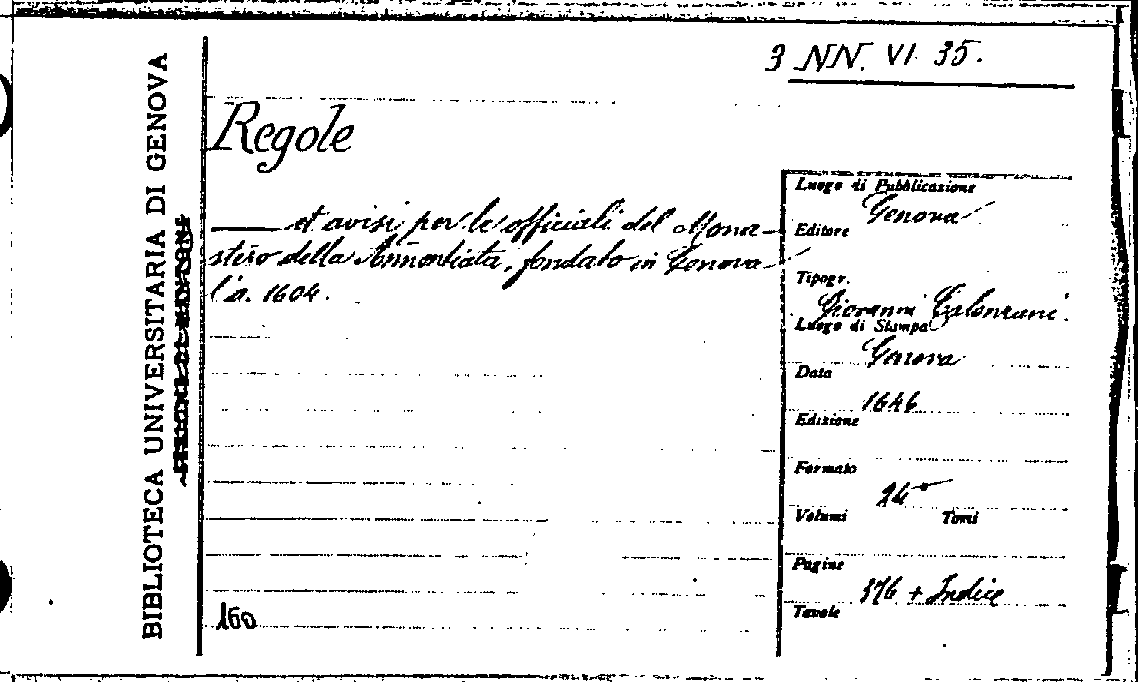 3 NN. VI 35.
BIBLIOTECA UNIVERSITARIA DI GENOVA
Regole
et avisi per le officiali del Mona-
stero della Annontiata, fondato in Genova
l'a. 1604.
Luogo di Pubblicazione
Genova
Editore
Tipogr.
Giovanni Calenzani
Luogo di Stampa
Genova
Data
1646
Edizione
Formato
24°
Volumi Tomi
Pagine
376 + Indice
Tavole
160